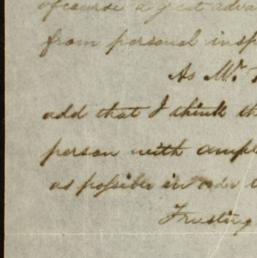 of course a great adva
from personal insp
As Mr.
add that I think th
person with ampl
as possible in order t
Trusting